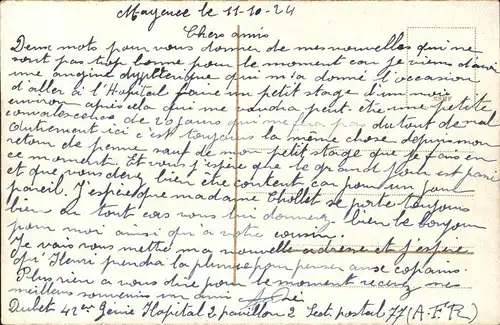 Mayence le 11-10-24
Chers amis
Deux mots pour vous donner de mes nouvelles qui ne
sont pas trop bonne pour le moment car je viens d'avoir
une angine qui m'a donné l'occasion
d'aller à l'Hopital faire un petit stage d'un mois
environ après cela qui me voudra peut être une petite
convalescence de 20 jours qui me pas du tout de mal
Autrement ici c'est toujours la même chose depuis mon
retour de perme sauf de mon petit stage que je fais en
ce moment. Et vous j'espère que le grand jour est passé
et que vous devez bien être content car pour un jour
pareil. J'espère que madame Chollet se porte toujours
bien en tout cas vous lui donnerez bien le bonjour
pour moi ainsi qu'a votre cousin.
Je vais vous mettre ma nouvelle adresse et j'espère
qu'Henri prendra la plume pour penser aux copains
Plus rien a vous dire pour le moment recevez mes
meilleurs souvenirs un ami
Dubet 42e Génie Hopital 2 pavillon 2 Sect. postal 77 (A-F R)